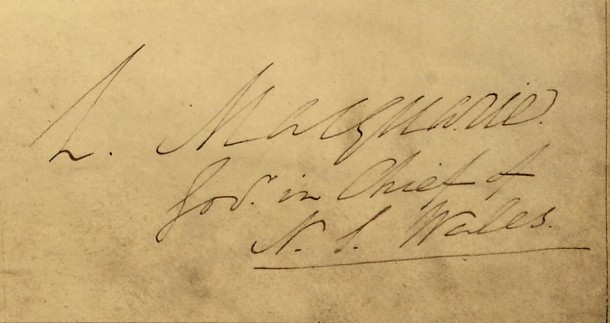 L. Macquarie.
Govr. in Chief of
N. S. Wales.